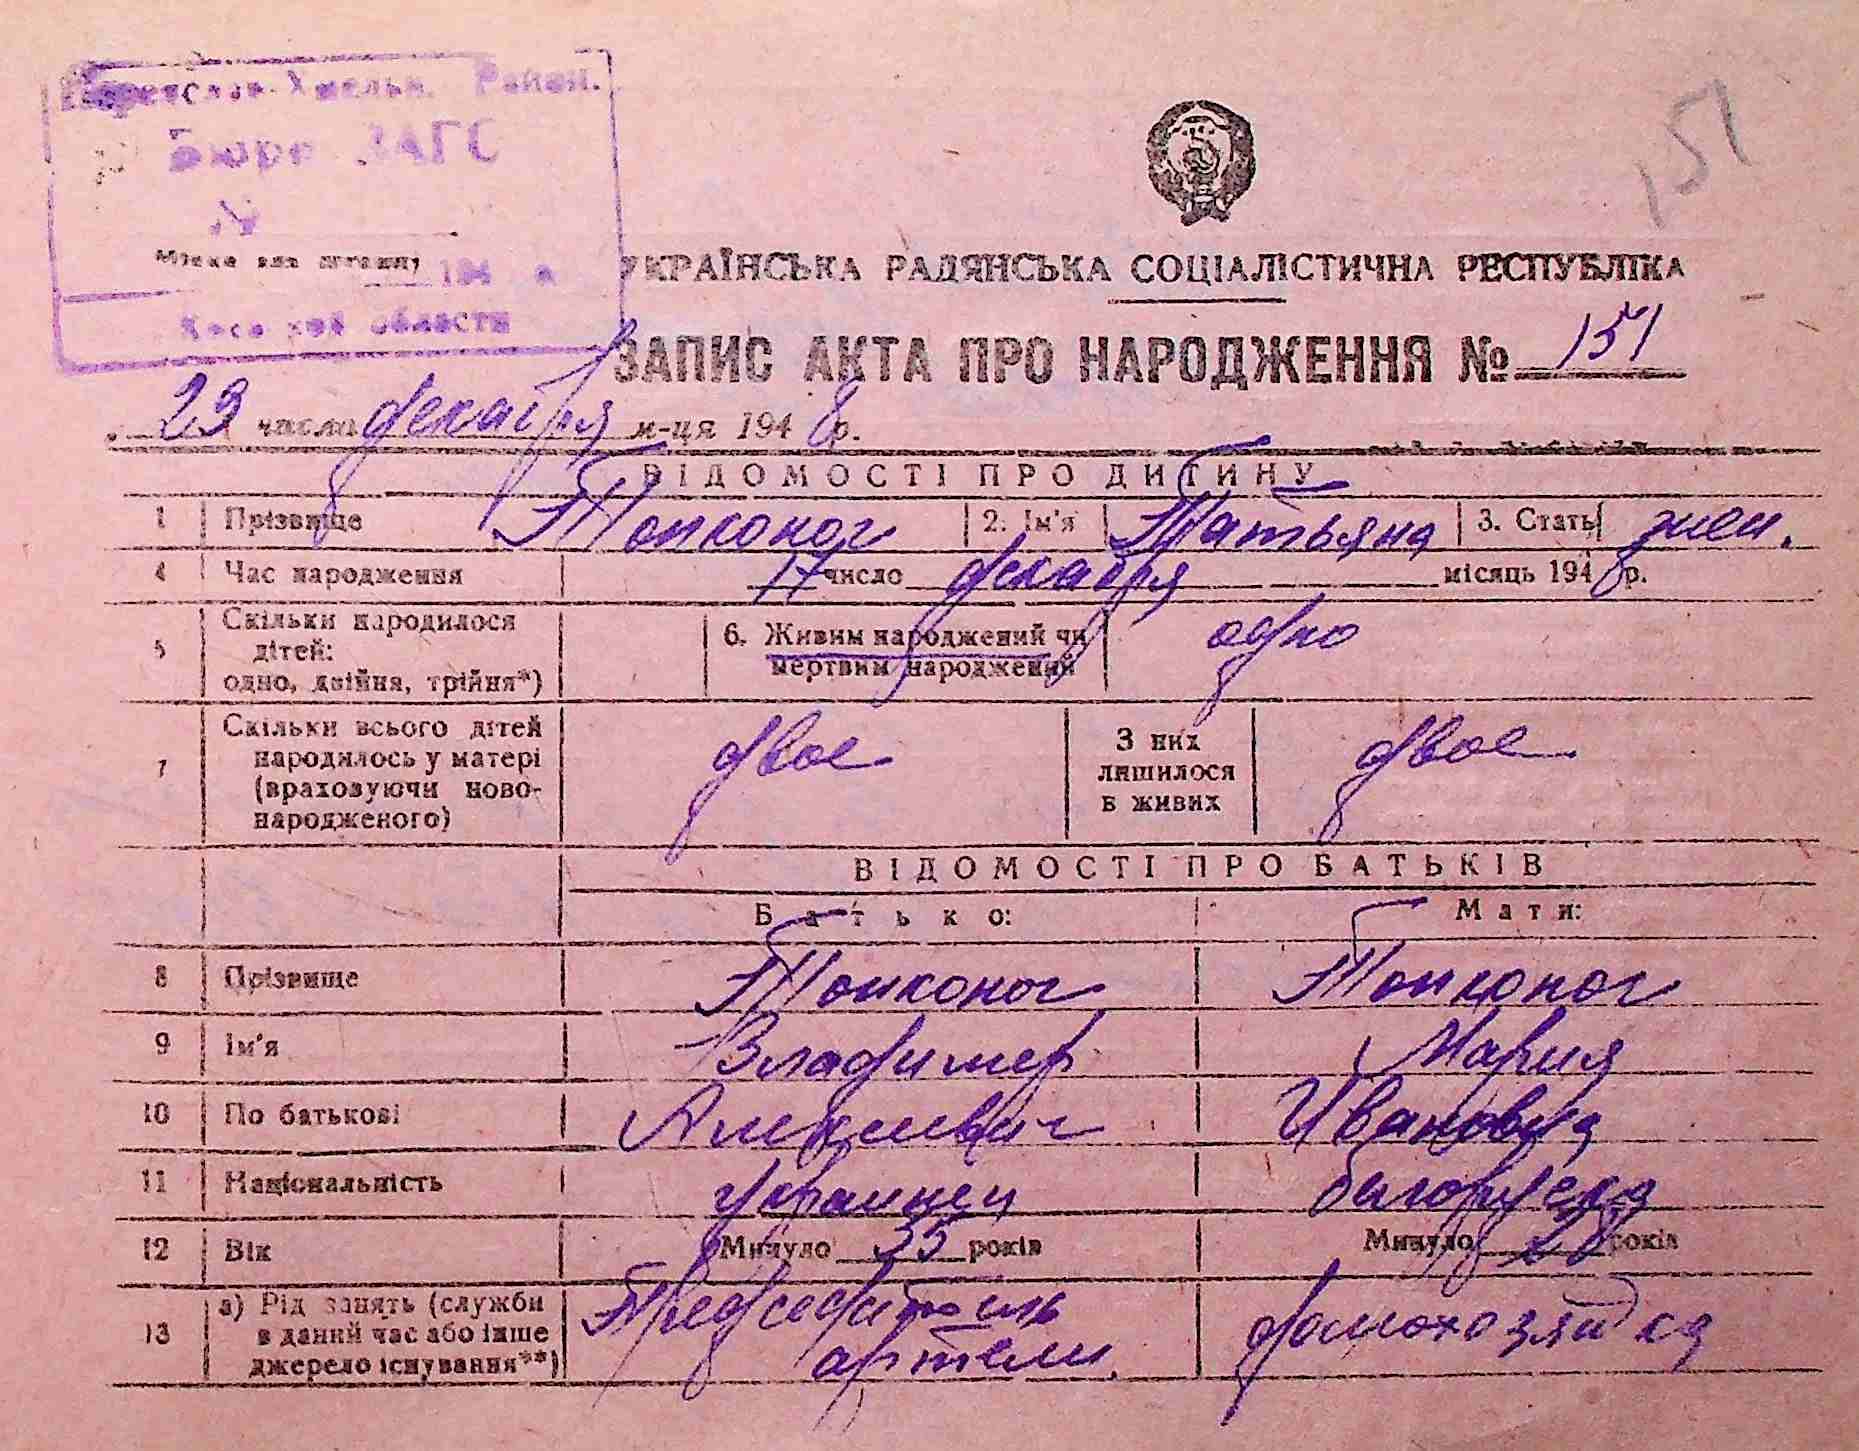 Район.
Бюро ЗАГС
№
194
области
151
УКРАЇНСЬКА РАДЯНСЬКА СОЦІАЛІСТИЧНА РЕСПУБЛІКА
ЗАПИС АКТА ПРО НАРОДЖЕННЯ № 151
23 числа декабря м-ця 1948 р.
ВІДОМОСТІ ПРО ДИТИНУ
1 Прізвище Топконог 2. Ім'я Татьяна 3. Стать жен.
4 Час народження 17 число декабря місяць 1948 р.
5 Скільки народилося дітей: одно, двійня, трійня*) 6. Живим народжений чи мертвим народжений одно
7 Скільки всього дітей народилось у матері (враховуючи ново-народженого) двое З них лишилося в живих двое
ВІДОМОСТІ ПРО БАТЬКІВ
Батько: Мати:
8 Прізвище Топконог Топконог
9 Ім'я Владимер Мария
10 По батькові Алексеевич Ивановна
11 Національність украинец белоруска
12 Вік Минуло 35 років Минуло 28 років
13 а) Рід занять (служби в даний час або інше джерело існування**) Председатель артели. домохозяйка